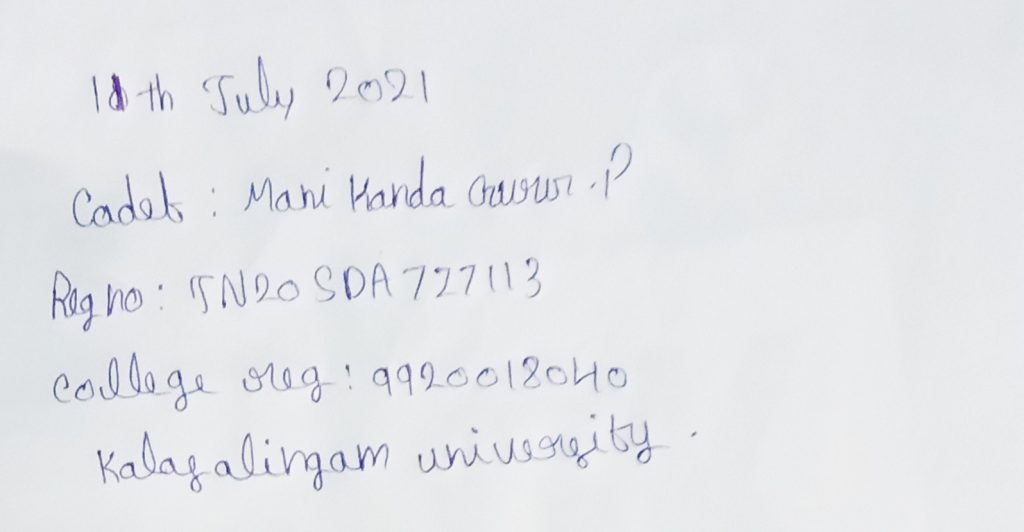 July 2021
Cadet : Mani Kanda .P
Reg no : TN20 SDA 727113
College reg : 9920018040
Kalasalingam university .